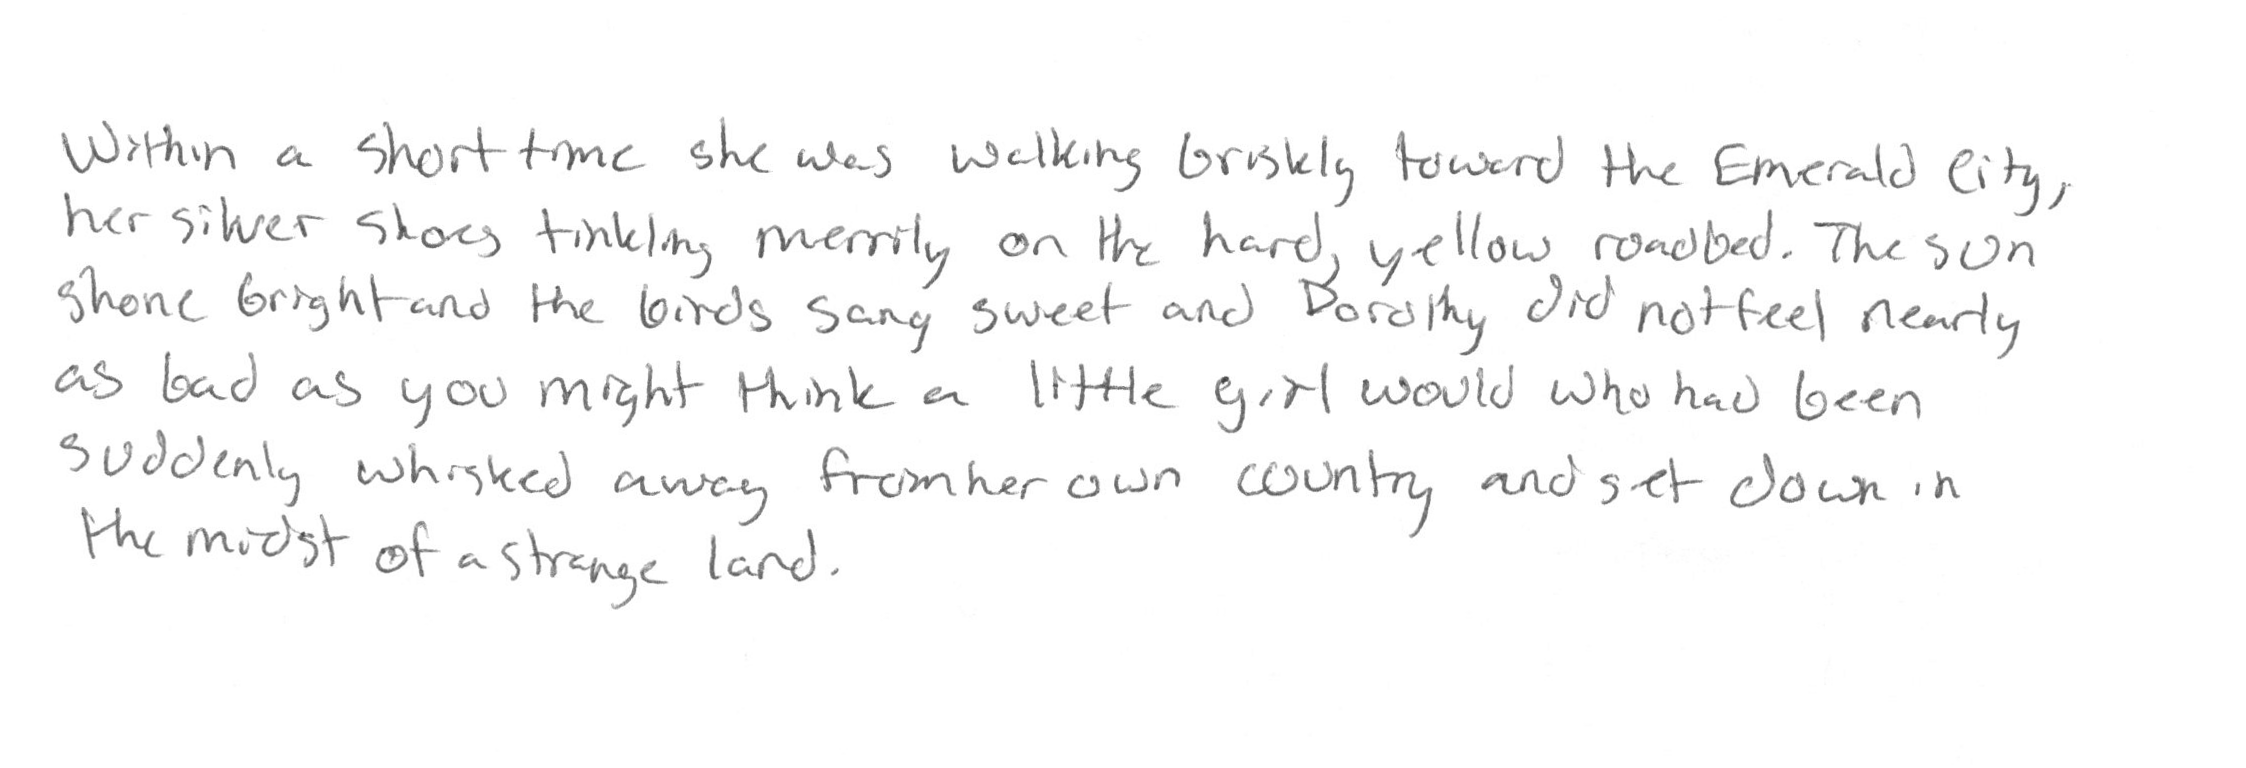 Within a short time she was walking briskly toward the Emerald City,
her silver shoes tinkling merrily on the hard, yellow roadbed. The sun
shone bright and the birds sang sweet and Dorothy did not feel nearly
as bad as you might think a little girl would who had been
suddenly whisked away from her own country and set down in
the midst of a strange land.